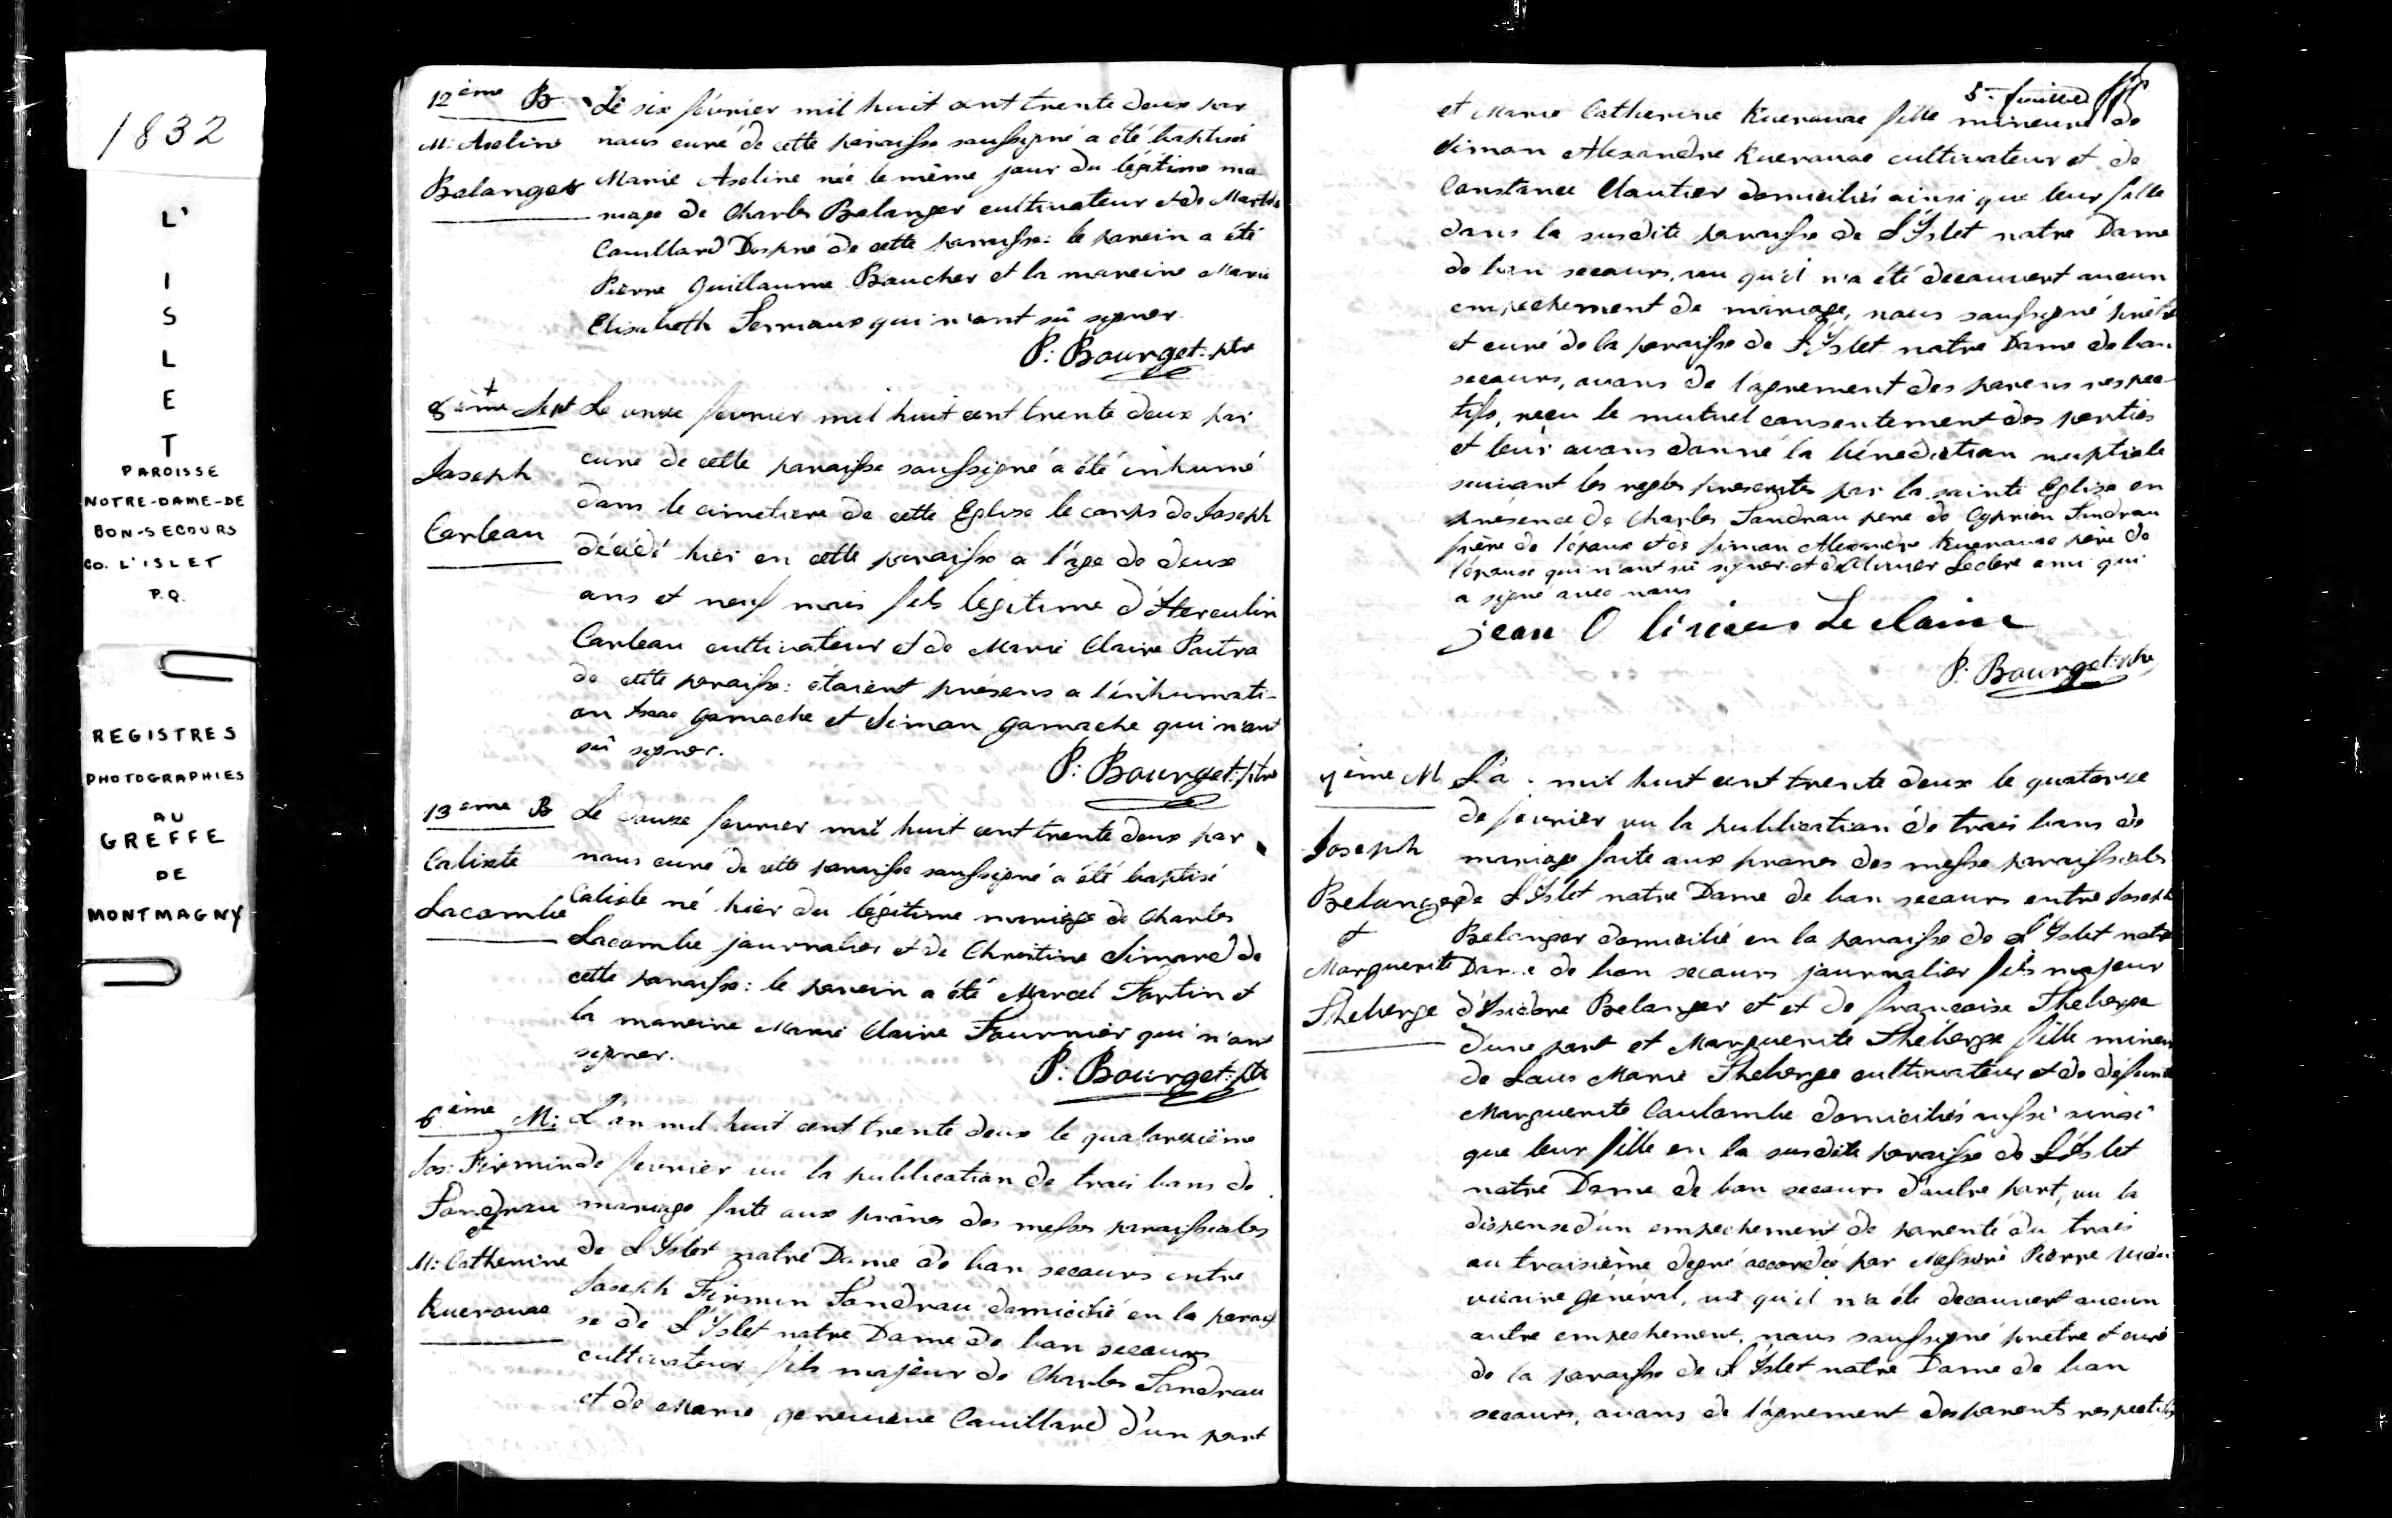 1832
L'
I
S
L
E
T
PAROISSE
NOTRE-DAME-DE
BON-SECOURS
CO. L'ISLET
P.Q.
REGISTRES
PHOTOGRAPHIES
AU
GREFFE
DE
MONTMAGNY
12ème B
M: Aseline
Belanger
Le six février mil huit cent trente deux par
nous curé de cette paroisse soussigné a été baptisé
Marie Aseline née le même jour du légitime ma
riage de Charles Belanger cultivateur et de Marthe
Couillard Després de cette paroisse: le parein a été
Pierre Guillaume Boucher et la mareine Marie
Elisabeth qui n'ont sû signer.
P: Bourget: ptre
8ème Sept
Joseph
Carleau
Le onze fevrier mil huit cent trente deux par
curé de cette paroisse soussigné a été inhumé
dans le cimetiere de cette Eglise le corps de Joseph
décédé hier en cette paroisse a l'age de deux
ans et neuf mois fils légitime d'Herculin
Carleau cultivateur et de Marie Claire Poitra
de cette paroisse: étaient présens a l'inhumati-
on Isaac Gamache et Simon Gamache qui n'ont
sû signer.
P: Bourget: ptre
13ème B
Calixte
Lacombe
Le douze fevrier mil huit cent trente deux par
nous curé de cette paroisse soussigné a été baptisé
Calixte né hier du légitime mariage de Charles
Lacombe journalier et de Christine Simard de
cette paroisse: le parein a été Marcel Fortin et
la mareine Marie Claire Fournier qui n'ont
signer.
P: Bourget: ptre
6ème M:
Jos: Firmin
Fandrau
et
M: Catherine
Kuerouac
L'an mil huit cent trente deux le quatorzième
de fevrier vu la publication de trois bans de
mariage faite aux prônes des messes paroissiales
de L'Yslet notre Dame de bon secours entre
Joseph Firmin Fandrau domicilié en la parois
se de L'Yslet notre Dame de bon secours
cultivateur fils majeur de Charles Fandrau
et de Marie genevieve Couillard d'un part
5me feuillet
et Marie Catherine Kuerouac fille mineure de
Simon Alexandre Kuerouac cultivateur et de
Constance Cloutier domiciliés ainsi que leur fille
dans la susdite paroisse de L'Yslet notre Dame
de bon secours, vu qu'il n'a été decouvert aucun
empechement de mariage, nous soussigné prêtre
et curé de la paroisse de L'Yslet notre Dame de bon
secours, avons de l'agrement des parens respec-
tifs, reçu le mutuel consentement des parties
et leur avons donné la bénédiction nuptiale
suivant les regles prescrites par la sainte Eglise en
présence de Charles Fandrau pere de Cyprien Fandrau
frère de l'époux et de Simon Alexandre Kuerouac père de
l'épouse qui n'ont sû signer et d'Olivier Leclerc ami qui
a signé avec nous
jean Olivier Le claire
P: Bourget: ptre
7ème M
Joseph
Belanger
et
Marguerite
Theberge
L'a mil huit cent trente deux le quatorze
de fevrier vu la publication de trois bans de
mariage faite aux prones des messe paroissiales
de L'Yslet notre Dame de bon secours entre Joseph
Belanger domicilié en la paroisse de L'Yslet notre
Dame de bon secours journalier fils majeur
d'Isidore Belanger et et de francoise Theberge
d'une part et Marguerite Theberge fille mineu
de Louis Marie Theberge cultivateur et de défunte
Marguerite Coulombe domiciliés aussi ainsi
que leur fille en la susdite paroisse de L'Islet
notre Dame de bon secours d'autre part, vu la
dispense d'un empechement de parenté du trois
au troisième degré accordée par Messire Pierre
vicaire général, vu qu'il n'a été decouvert aucun
autre empechement, nous soussigné pretre et curé
de la paroisse de L'Yslet notre Dame de bon
secours, avons de l'agrement des parents respectifs